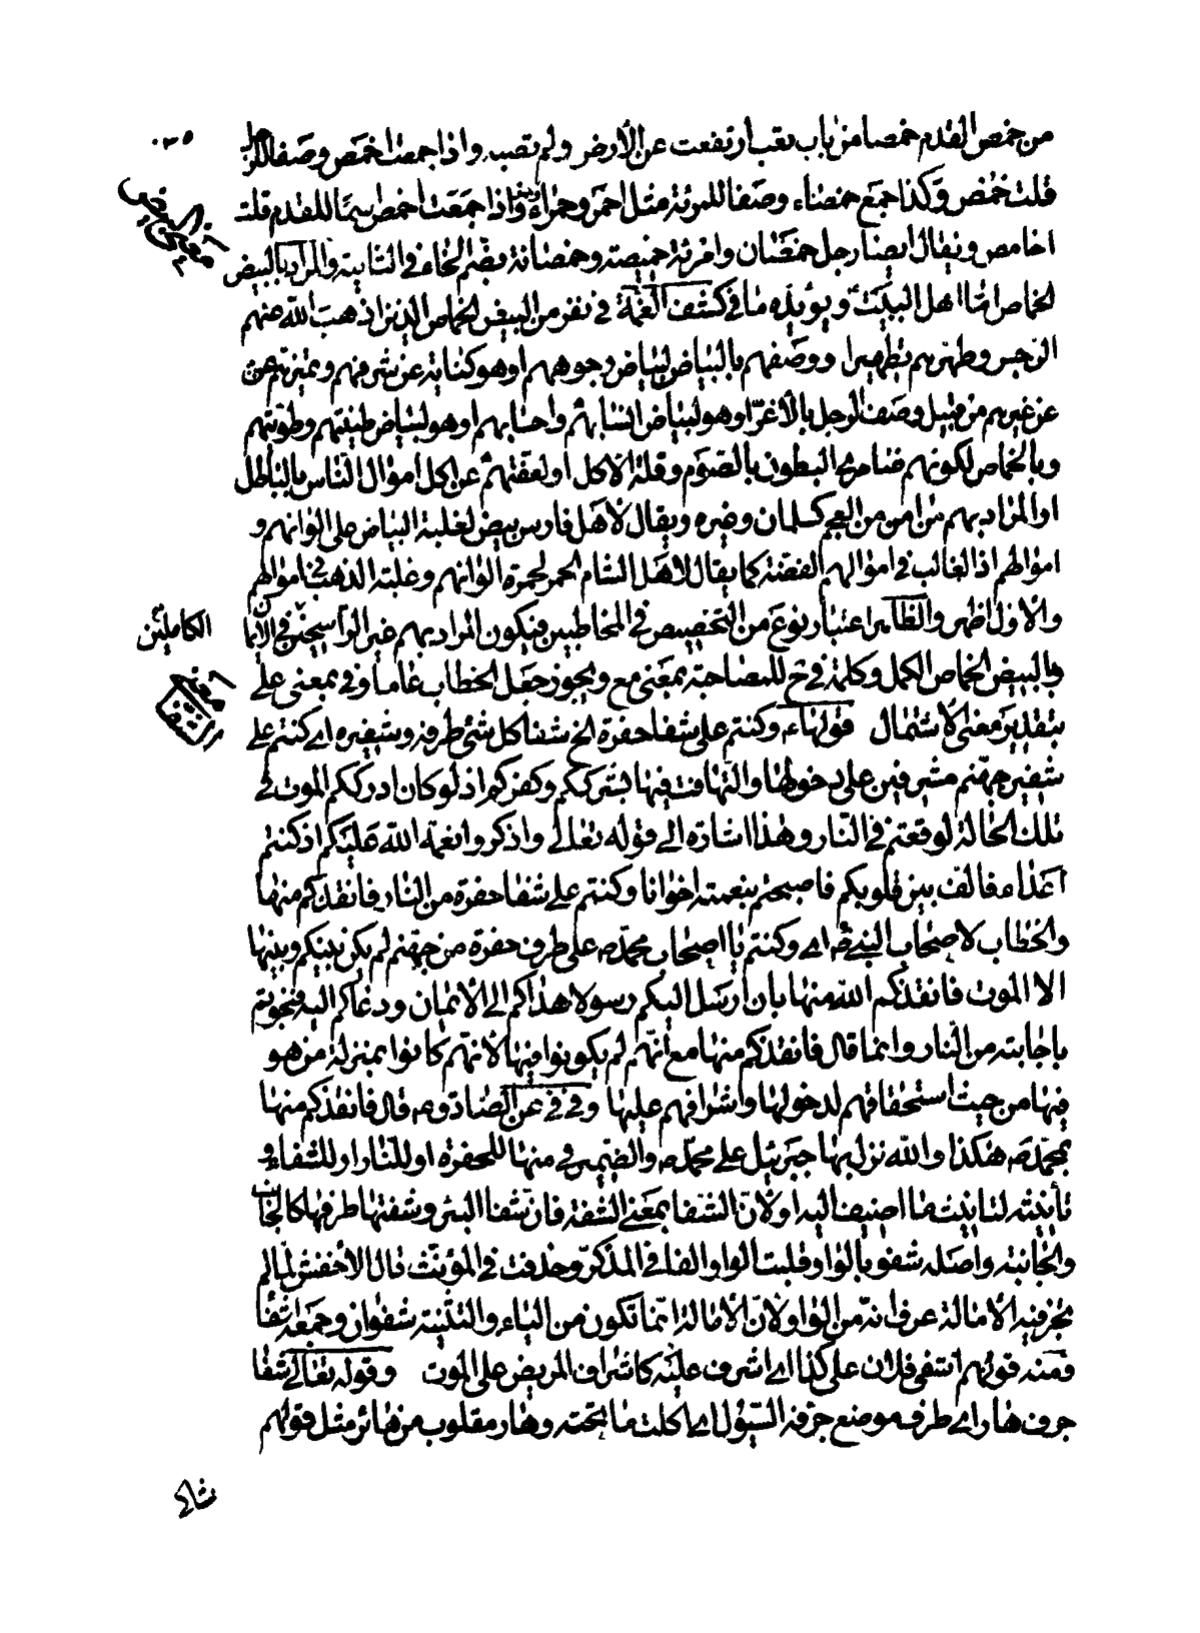 ٠٣٥
من خمص القدم خمصا من باب تعب ارتفعت عن الأرض ولم تصبه واذا جمعت اخمص وصفا للرجل
قلت خمص وكذا جمع خمصاء وصفا للمرئة مثل احمر وحمراء واذا جمعت اخمص اسمًا للقدم قلت
اخامص ويقال ايضا رجل خمصان وامرئة خميصة وخمصانة بضم الخاء في الثانية والمراد بالبيض
الخماص امّا اهل البيت ع ويؤيده ما في كشف الغمة في نفر من البيض الخماص الذين اذهب الله عنهم
الرجس وطهرهم تطهيرا ووصفهم بالبياض لبياض وجوههم او هو كناية عن شرفهم وتميزهم عن
عن غيرهم من قبيل وصف الرجل بالأغر او هو لبياض انسابهم واحسابهم او هو لبياض طينتهم وطويتهم
وبالخماص لكونهم ضامري البطون بالصوم وقلة الاكل او لعفتهم عن اكل اموال الناس بالباطل
او المراد بهم من امن من العجم كسلمان وغيره ويقال لاهل فارس بيض لغلبة البياض على الوانهم و
اموالهم اذ الغالب في اموالهم الفضة كما يقال لاهل الشام الحمر لحمرة الوانهم وغلبة الذهب في اموالهم
والأول اظهر والظاهر اعتبار نوع من التخصيص في المخاطبين فيكون المراد بهم غير الراسخين في الأيمان
الكاملين
وبالبيض الخماص الكمل وكلمة في ح للمصاحبة بمعنى مع ويجوز جعل الخطاب عاما وفي بمعنى على
بتقدير معنى الاشتمال قولها ع وكنتم على شفا حفرة الخ شفا كل شئ طرفه وشفيره اي كنتم على
معنى الشفا
شفير جهنم مشرفين على دخولها والتهافت فيها لشرككم وكفركم اذ لو كان ادرككم الموت في
تلك الحالة لوقعتم في النار وهذا اشارة الى قوله تعالى واذكروا نعمة الله عليكم اذ كنتم
اعداء فالف بين قلوبكم فاصبحتم بنعمته اخوانا وكنتم على شفا حفرة من النار فانقذكم منها
والخطاب لاصحاب النبي ص اي وكنتم يا اصحاب محمد ص على طرف حفرة من جهنم لم يكن بينكم وبينها
الا الموت فانقذكم الله منها بان ارسل اليكم رسولا هداكم الى الأيمان ودعاكم اليه فنجوتم
باجابته من النار وانما قال فانقذكم منها مع انهم لم يكونوا فيها لأنهم كانوا بمنزلة من هو
فيها من حيث استحقاقهم لدخولها واشرافهم عليها وفي في عن الصادق ع قال فانقذكم منها
بمحمد ص هكذا والله نزل بها جبرئيل على محمد ص والضمير في منها للحفرة او للنار او للشفا و
تأنيثه لتانيث ما اضيف اليه او لأن الشفا بمعنى الشفة فان شفا البئر وشفتها طرفها كالجانب
والجانبة واصله شفو بالواو قلبت الواو الفا في المذكر وحذفت في المؤنث قال الأخفش لما لم
يجز فيه الأمالة عرف انه من الواو لأن الأمالة انما تكون من الياء والتثنية شفوان وجمعه اشفا
ومنه قولهم اشفى فلان على كذا اي اشرف عليه كاشراف المريض على الموت وقوله تعالى شفا
جرف هار اي طرف موضع جرفه السيول اي اكلت ما تحته وهار مقلوب من هائر مثل قولهم
شاك